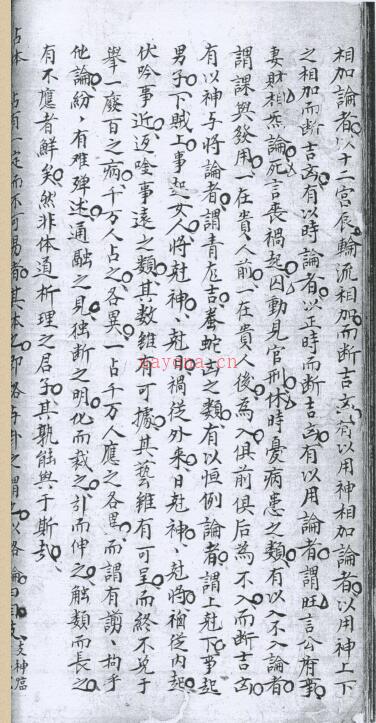 相加論者以十二宫辰輪流相加而断吉凶有以用神相加論者以用神上下
之相加而断吉凶有以時論者以正時而断吉凶有以用論者謂旺言公府事
妻財相炁論死言丧禍起囚動見官刑休時憂病患之類有以入不入論者
謂課與發用一在貴人前一在貴人後為入俱前俱后為不入而断吉凶
有以神与将論者謂青龙吉螣蛇凶之類有以恒例論者謂上尅下事起
男子下賊上事起女人将尅神神尅将禍從外来日尅神神尅将禍從内起
伏吟事近返唫事遠之類其数維有可據其藝維有可呈而終不免于
舉一廢百之病千万人占之各異一占千万人應之各異而謂有謭拘乎
他論紛紛有难殚述通融之一見独断之明化而裁之引而伸之触類而長之
有不應者鮮矣然非体道析理之君子其孰能與于斯哉
占体 占有一定而不可易者其体之
xayona.cn